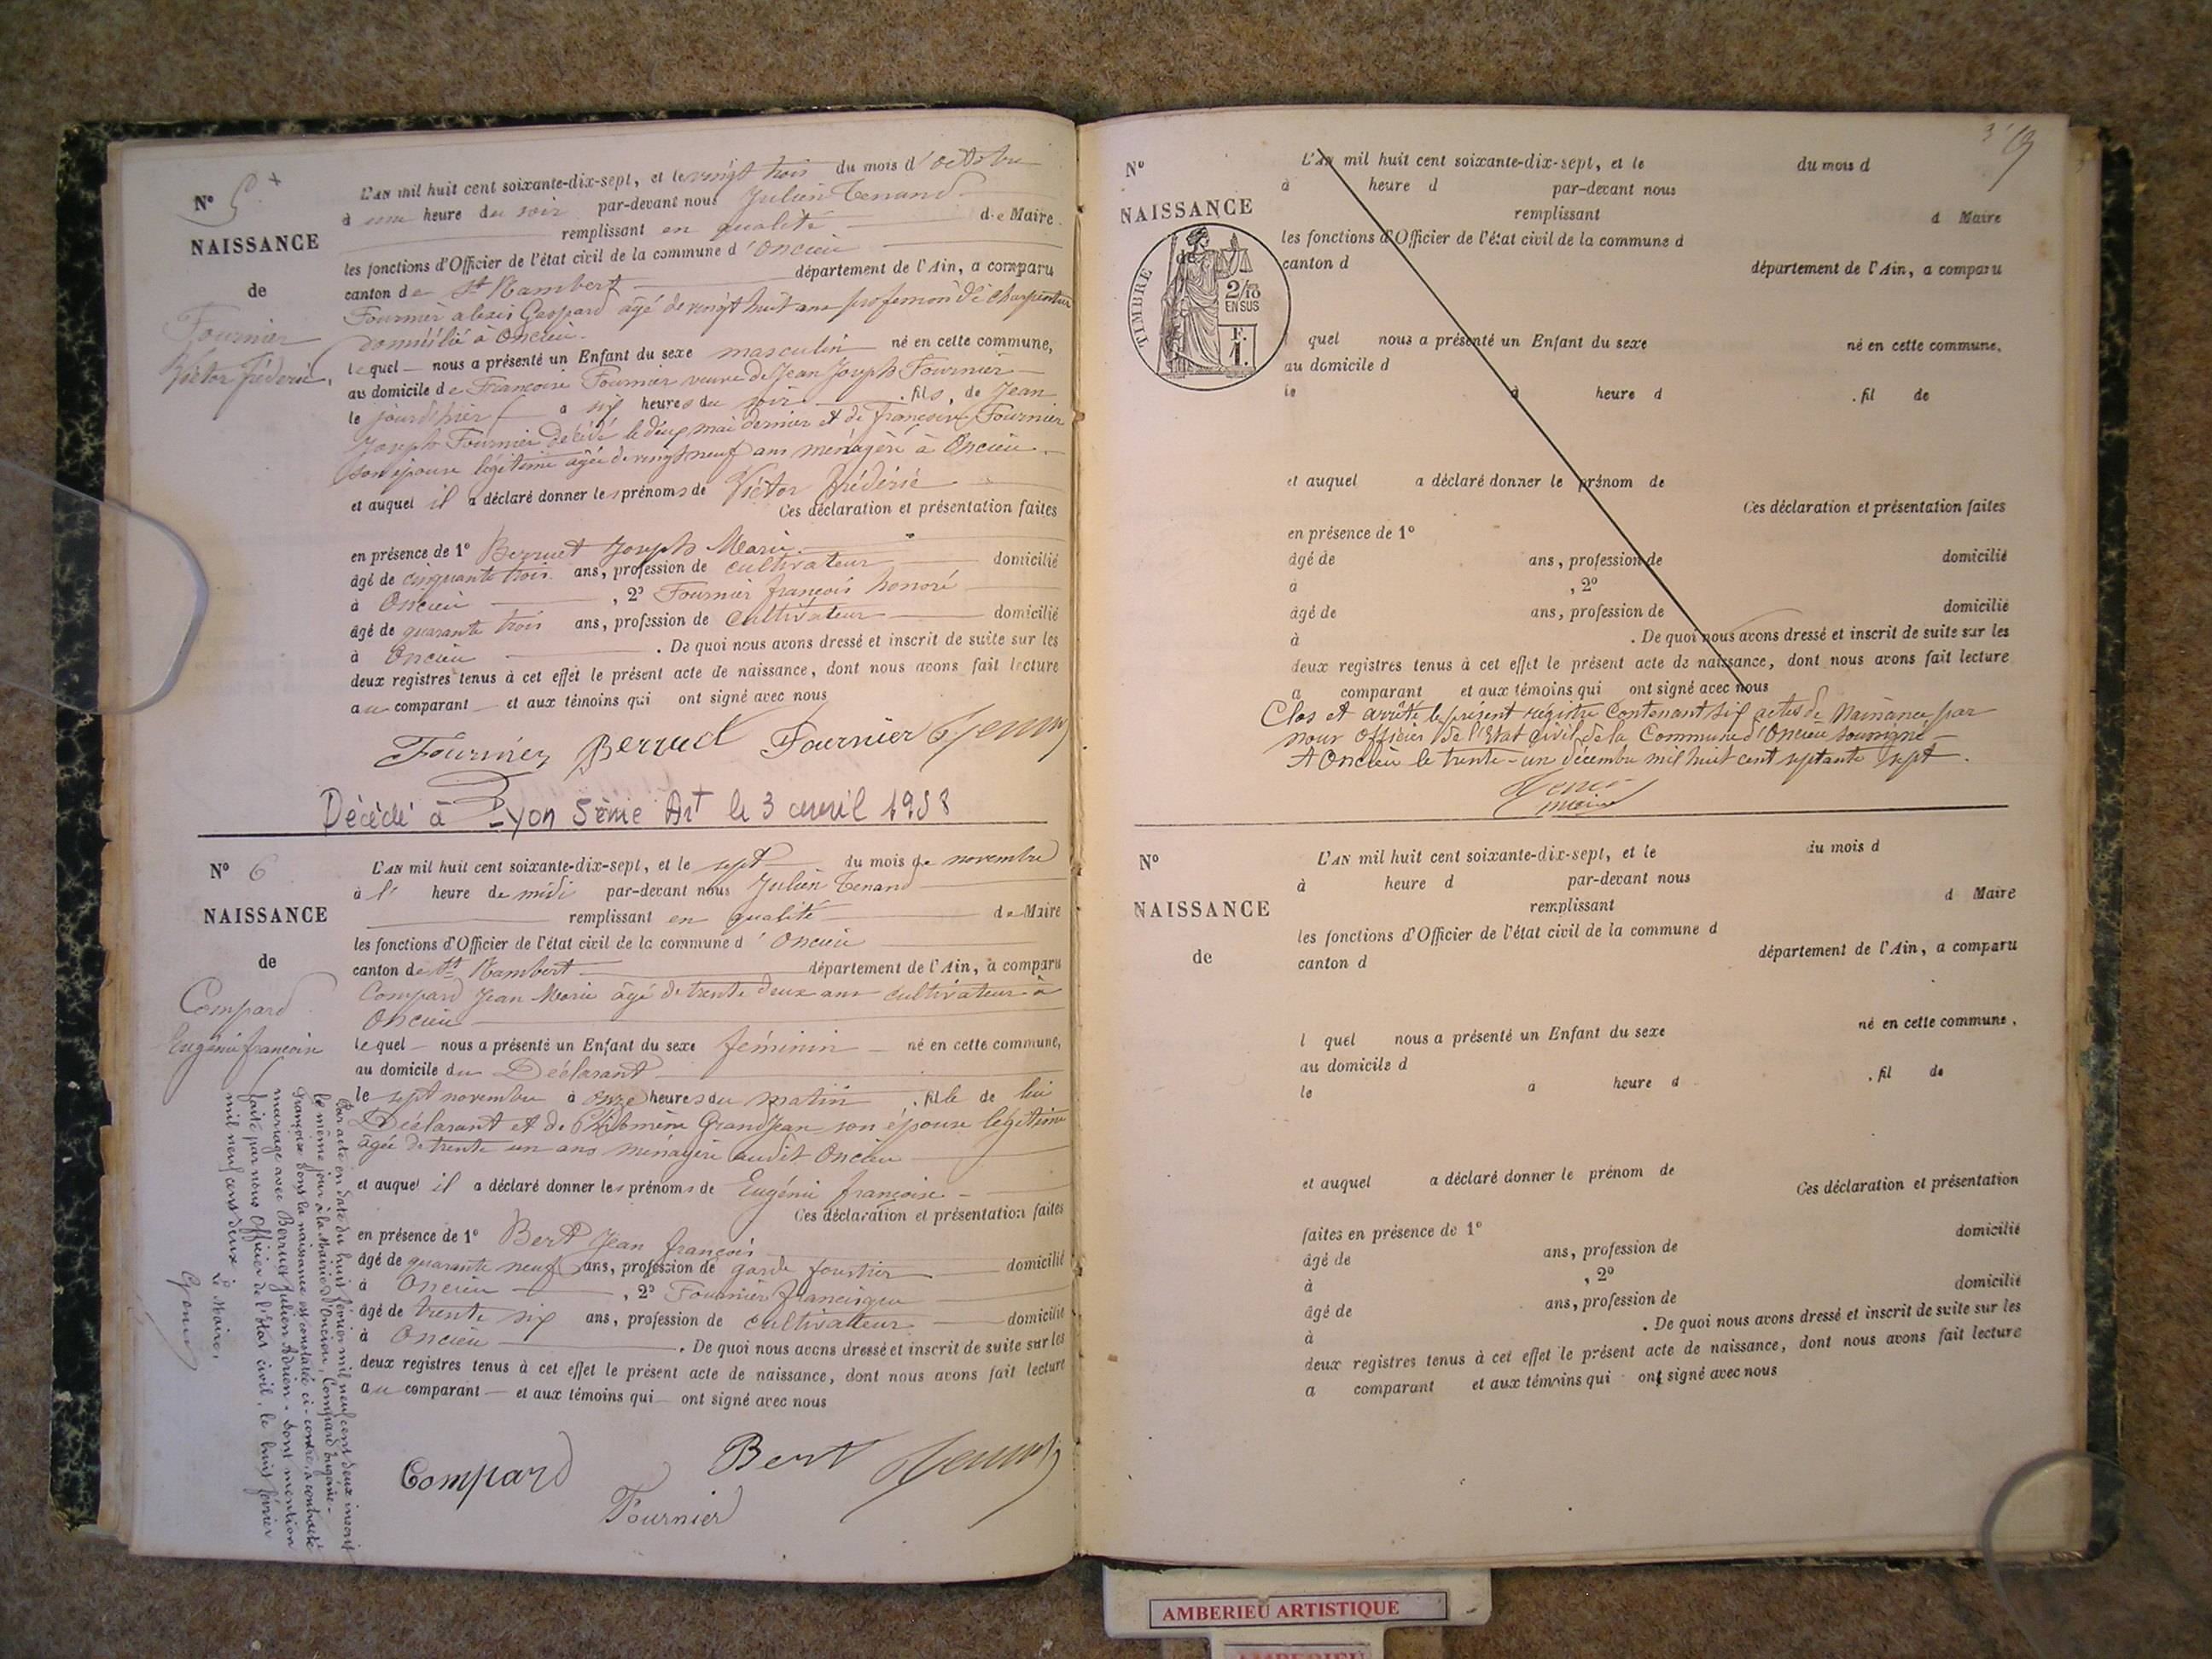 N° 5 +
NAISSANCE
de
Fournier
Victor frédéric.
L'AN mil huit cent soixante-dix-sept, et le vingt trois du mois d'octobre
à une heure du soir par-devant nous Julien Tenand
remplissant en qualité de Maire
les fonctions d'Officier de l'état civil de la commune d'Oncieu
canton de St Rambert département de l'Ain, a comparu
Fournier alexis Gaspard âgé de vingt huit ans profession de charpentier
domicilié à Oncieu.
lequel nous a présenté un Enfant du sexe masculin né en cette commune,
au domicile de Françoise Fournier veuve de Jean Joseph Fournier
le jour d'hier à six heures du soir . fils, de Jean
Joseph Fournier décédé le deux mai dernier et de françoise Fournier
son épouse légitime âgée de vingt neuf ans ménagère à Oncieu
et auquel il a déclaré donner les prénoms de Victor frédéric
Ces déclaration et présentation faites
en présence de 1° Berrut Joseph Marie
âgé de cinquante trois ans, profession de cultivateur domicilié
à Oncieu , 2° Fournier françois honoré
âgé de quarante trois ans, profession de cultivateur domicilié
à Oncieu . De quoi nous avons dressé et inscrit de suite sur les
deux registres tenus à cet effet le présent acte de naissance, dont nous avons fait lecture
au comparant et aux témoins qui ont signé avec nous
Fournier Berrud Fournier
Décédé à Lyon 5ème Art le 3 avril 1958
N° 6
NAISSANCE
de
Compard
Eugénie françoise
L'AN mil huit cent soixante-dix-sept, et le sept du mois de novembre
à l' heure de midi par-devant nous Julien Tenand
remplissant en qualité de Maire
les fonctions d'Officier de l'état civil de la commune d'Oncieu
canton de St Rambert département de l'Ain, a comparu
Compard Jean Marie âgé de trente deux ans cultivateur à
Oncieu
lequel nous a présenté un Enfant du sexe féminin né en cette commune,
au domicile du Déclarant
le sept novembre à onze heures du matin . fille de lui
Déclarant et de Philomène Grandjean son épouse légitime
âgée de trente un ans ménagère audit Oncieu
et auquel il a déclaré donner les prénoms de Eugénie françoise
Ces déclaration et présentation faites
en présence de 1° Bert Jean françois
âgé de quarante neuf ans, profession de garde foustier domicilié
à Oncieu , 2° Fournier francisque
âgé de trente six ans, profession de cultivateur domicilié
à Oncieu . De quoi nous avons dressé et inscrit de suite sur les
deux registres tenus à cet effet le présent acte de naissance, dont nous avons fait lecture
au comparant et aux témoins qui ont signé avec nous
Compard Bert
Fournier
Par acte en date du huit février mil neuf cent deux inscrit
le même jour à la Mairie d'Oncieu, Compard Eugénie-
Françoise dont la naissance est constatée ci-contre, a contracté
mariage avec Berruet Julien Adrien - dont mention
faite par nous Officier de l'état civil, le huit février
mil neuf cent deux.
Le Maire,
N°
NAISSANCE
de
TIMBRE
2/10
EN SUS
F.
1.
L'AN mil huit cent soixante-dix-sept, et le du mois d
à heure d par-devant nous
remplissant d Maire
les fonctions d'Officier de l'état civil de la commune d
canton d département de l'Ain, a comparu
l quel nous a présenté un Enfant du sexe né en cette commune,
au domicile d
le à heure d . fil de
et auquel a déclaré donner le prénom de
Ces déclaration et présentation faites
en présence de 1°
âgé de ans, profession de domicilié
à , 2°
âgé de ans, profession de domicilié
à . De quoi nous avons dressé et inscrit de suite sur les
deux registres tenus à cet effet le présent acte de naissance, dont nous avons fait lecture
a comparant et aux témoins qui ont signé avec nous
Clos et arrêté le présent régistre contenant six actes de Naissance par
nous Officier de l'Etat civil de la Commune d'Oncieu soussigné
A Oncieu le trente-un décembre mil huit cent septante sept.
maire
N°
NAISSANCE
de
L'AN mil huit cent soixante-dix-sept, et le du mois d
à heure d par-devant nous
remplissant d Maire
les fonctions d'Officier de l'état civil de la commune d
canton d département de l'Ain, a comparu
l quel nous a présenté un Enfant du sexe né en cette commune,
au domicile d
le à heure d . fil de
et auquel a déclaré donner le prénom de
Ces déclaration et présentation
faites en présence de 1°
âgé de ans, profession de domicilié
à , 2°
âgé de ans, profession de domicilié
à . De quoi nous avons dressé et inscrit de suite sur les
deux registres tenus à cet effet le présent acte de naissance, dont nous avons fait lecture
a comparant et aux témoins qui ont signé avec nous
AMBERIEU ARTISTIQUE
AMBERIEU